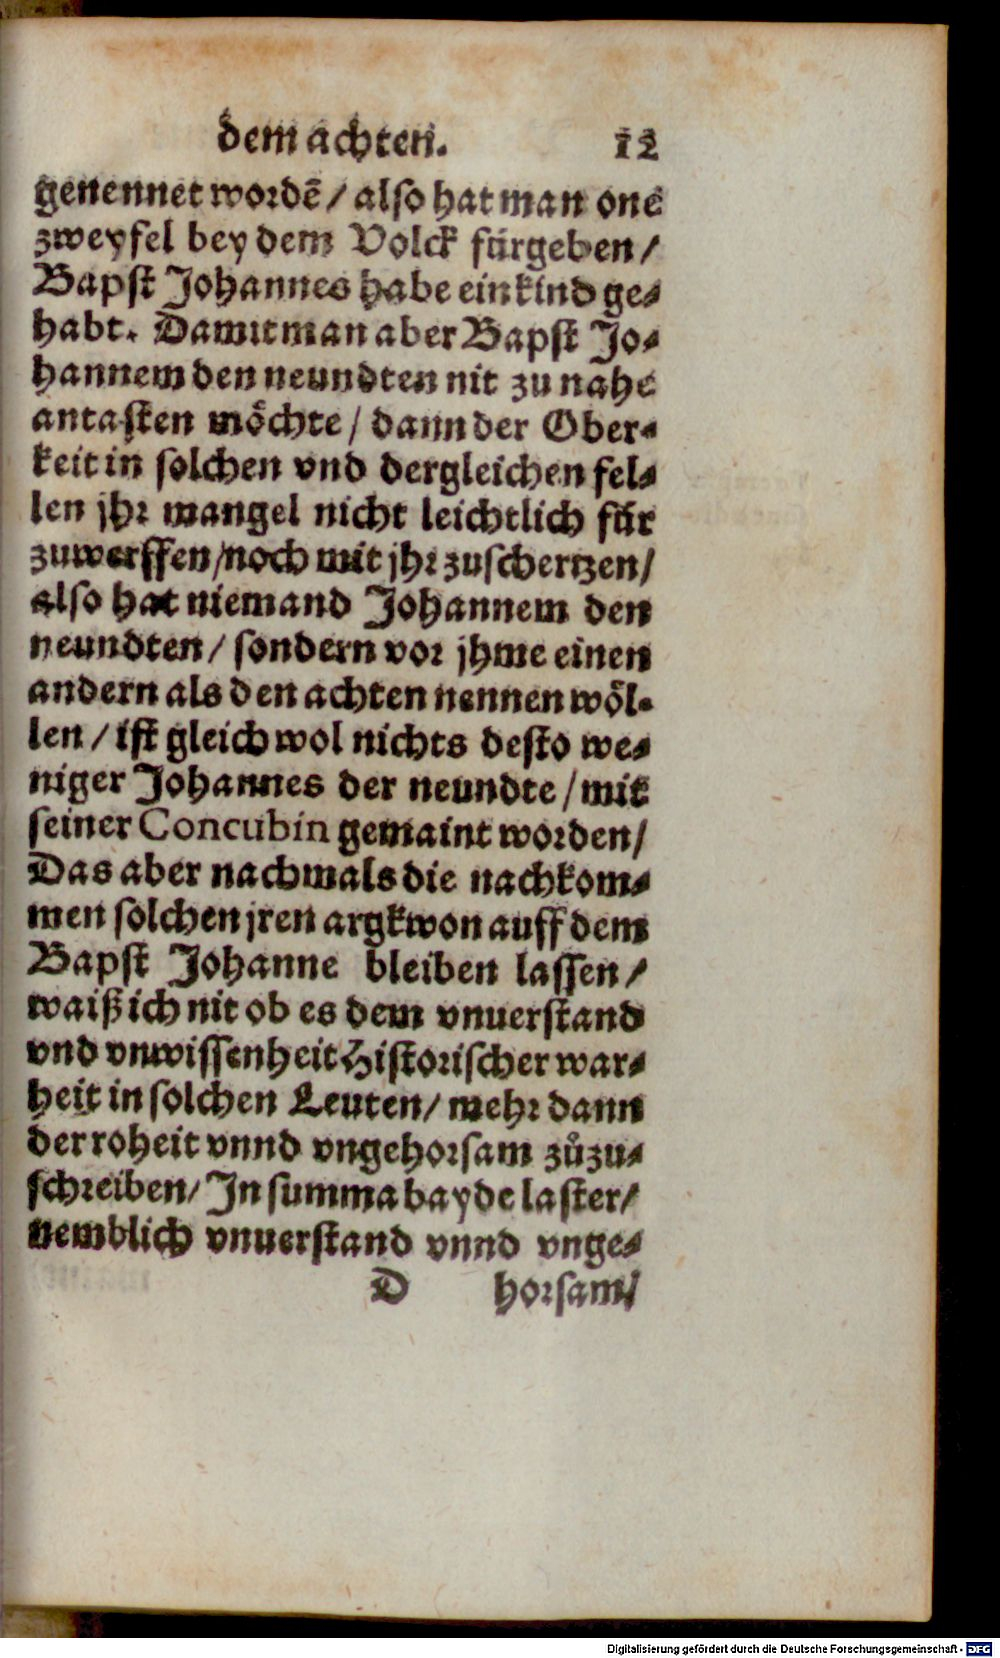 dem achten. 12
genennet wordē / also hat man one
zweyfel bey dem Volck fürgeben /
Bapst Johannes habe ein kind ge-
habt. Damit man aber Bapst Jo-
hannem den neundten nit zu nahe
antasten möchte / dann der Ober-
keit in solchen vnd dergleichen fel-
len jhr mangel nicht leichtlich für
zuwerffen / noch mit jhr zuschertzen /
also hat niemand Johannem den
neundten / sondern vor jhme einen
andern als den achten nennen wöl-
len / ist gleich wol nichts desto we-
niger Johannes der neundte / mit
seiner Concubin gemaint worden /
Das aber nachmals die nachkom-
men solchen jren argkwon auff dem
Bapst Johanne bleiben lassen /
waiß ich nit ob es dem vnuerstand
vnd vnwissenheit Historischer war-
heit in solchen Leuten / mehr dann
der roheit vnnd vngehorsam zůzu-
schreiben / In summa bayde laster /
nemblich vnuerstand vnnd vnge-
D horsam /
Digitalisierung gefördert durch die Deutsche Forschungsgemeinschaft - DFG